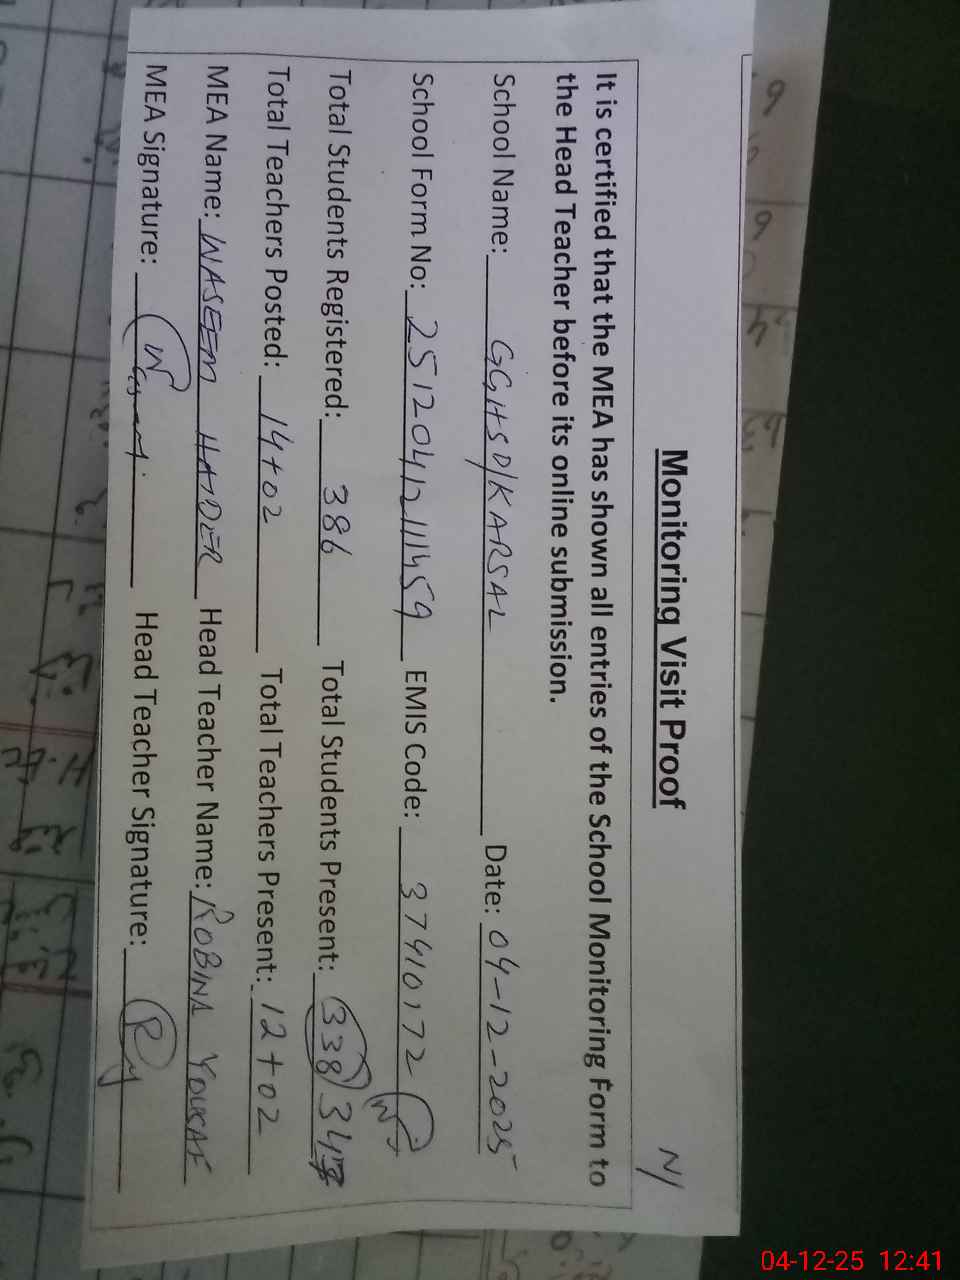 N/
Monitoring Visit Proof
It is certified that the MEA has shown all entries of the School Monitoring Form to
the Head Teacher before its online submission.
School Name: GGHS D/KARSAL Date: 04-12-2025
School Form No: 2512041211459 EMIS Code: 37410172
Total Students Registered: 386 Total Students Present: 338 347
Total Teachers Posted: 14+02 Total Teachers Present: 12+02
MEA Name: WASEEM HAIDER Head Teacher Name: ROBINA YOUSAF
MEA Signature: Head Teacher Signature:
04-12-25 12:41